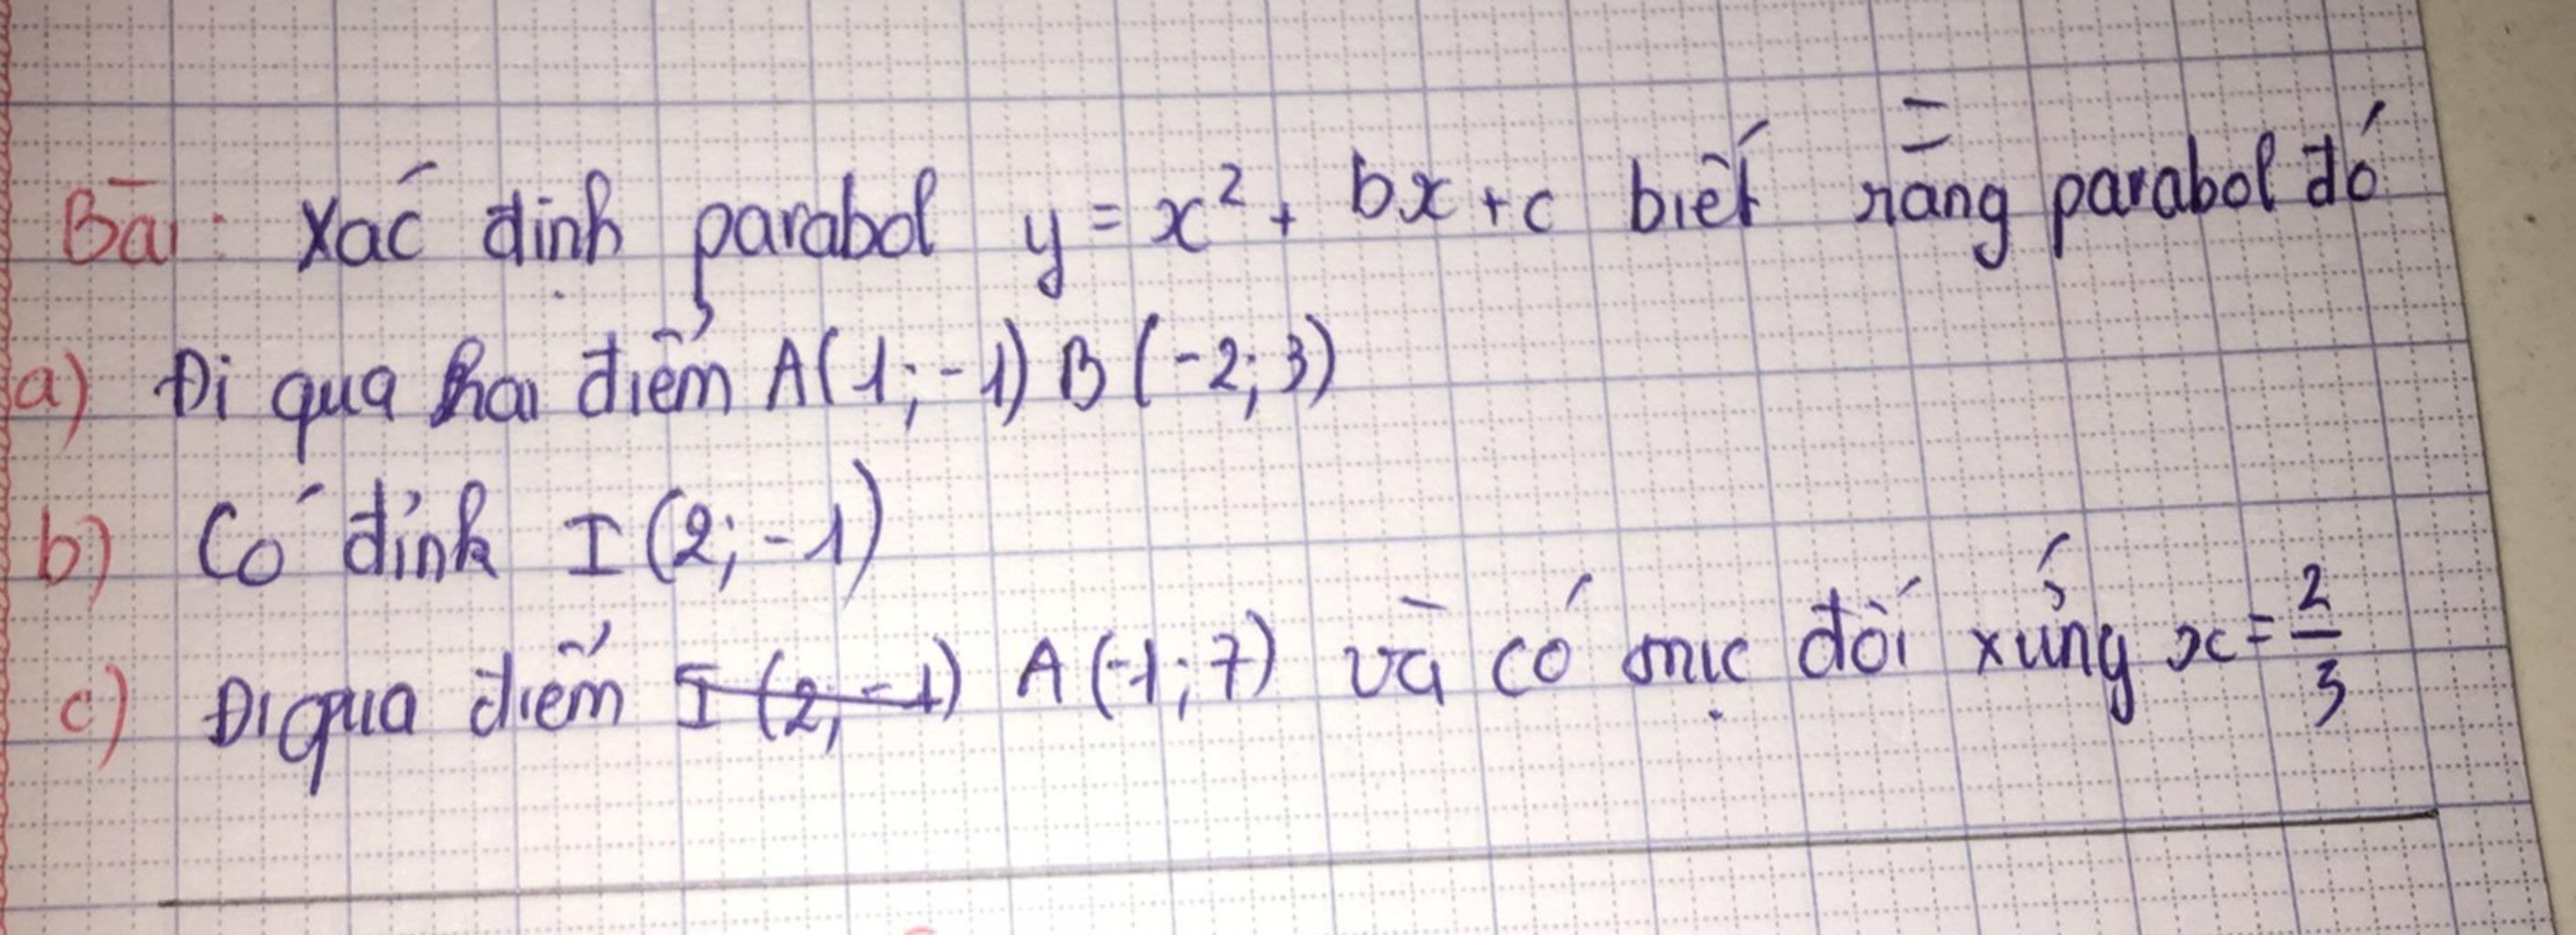 Bài: Xác định parabol y = x² + bx + c biết rằng parabol đó
a) Đi qua hai điểm A(1; -1) B(-2; 3)
b) Có đỉnh I(2; -1)
c) Đi qua điểm I(2; -1) A(-1; 7) và có trục đối xứng x = 2/3